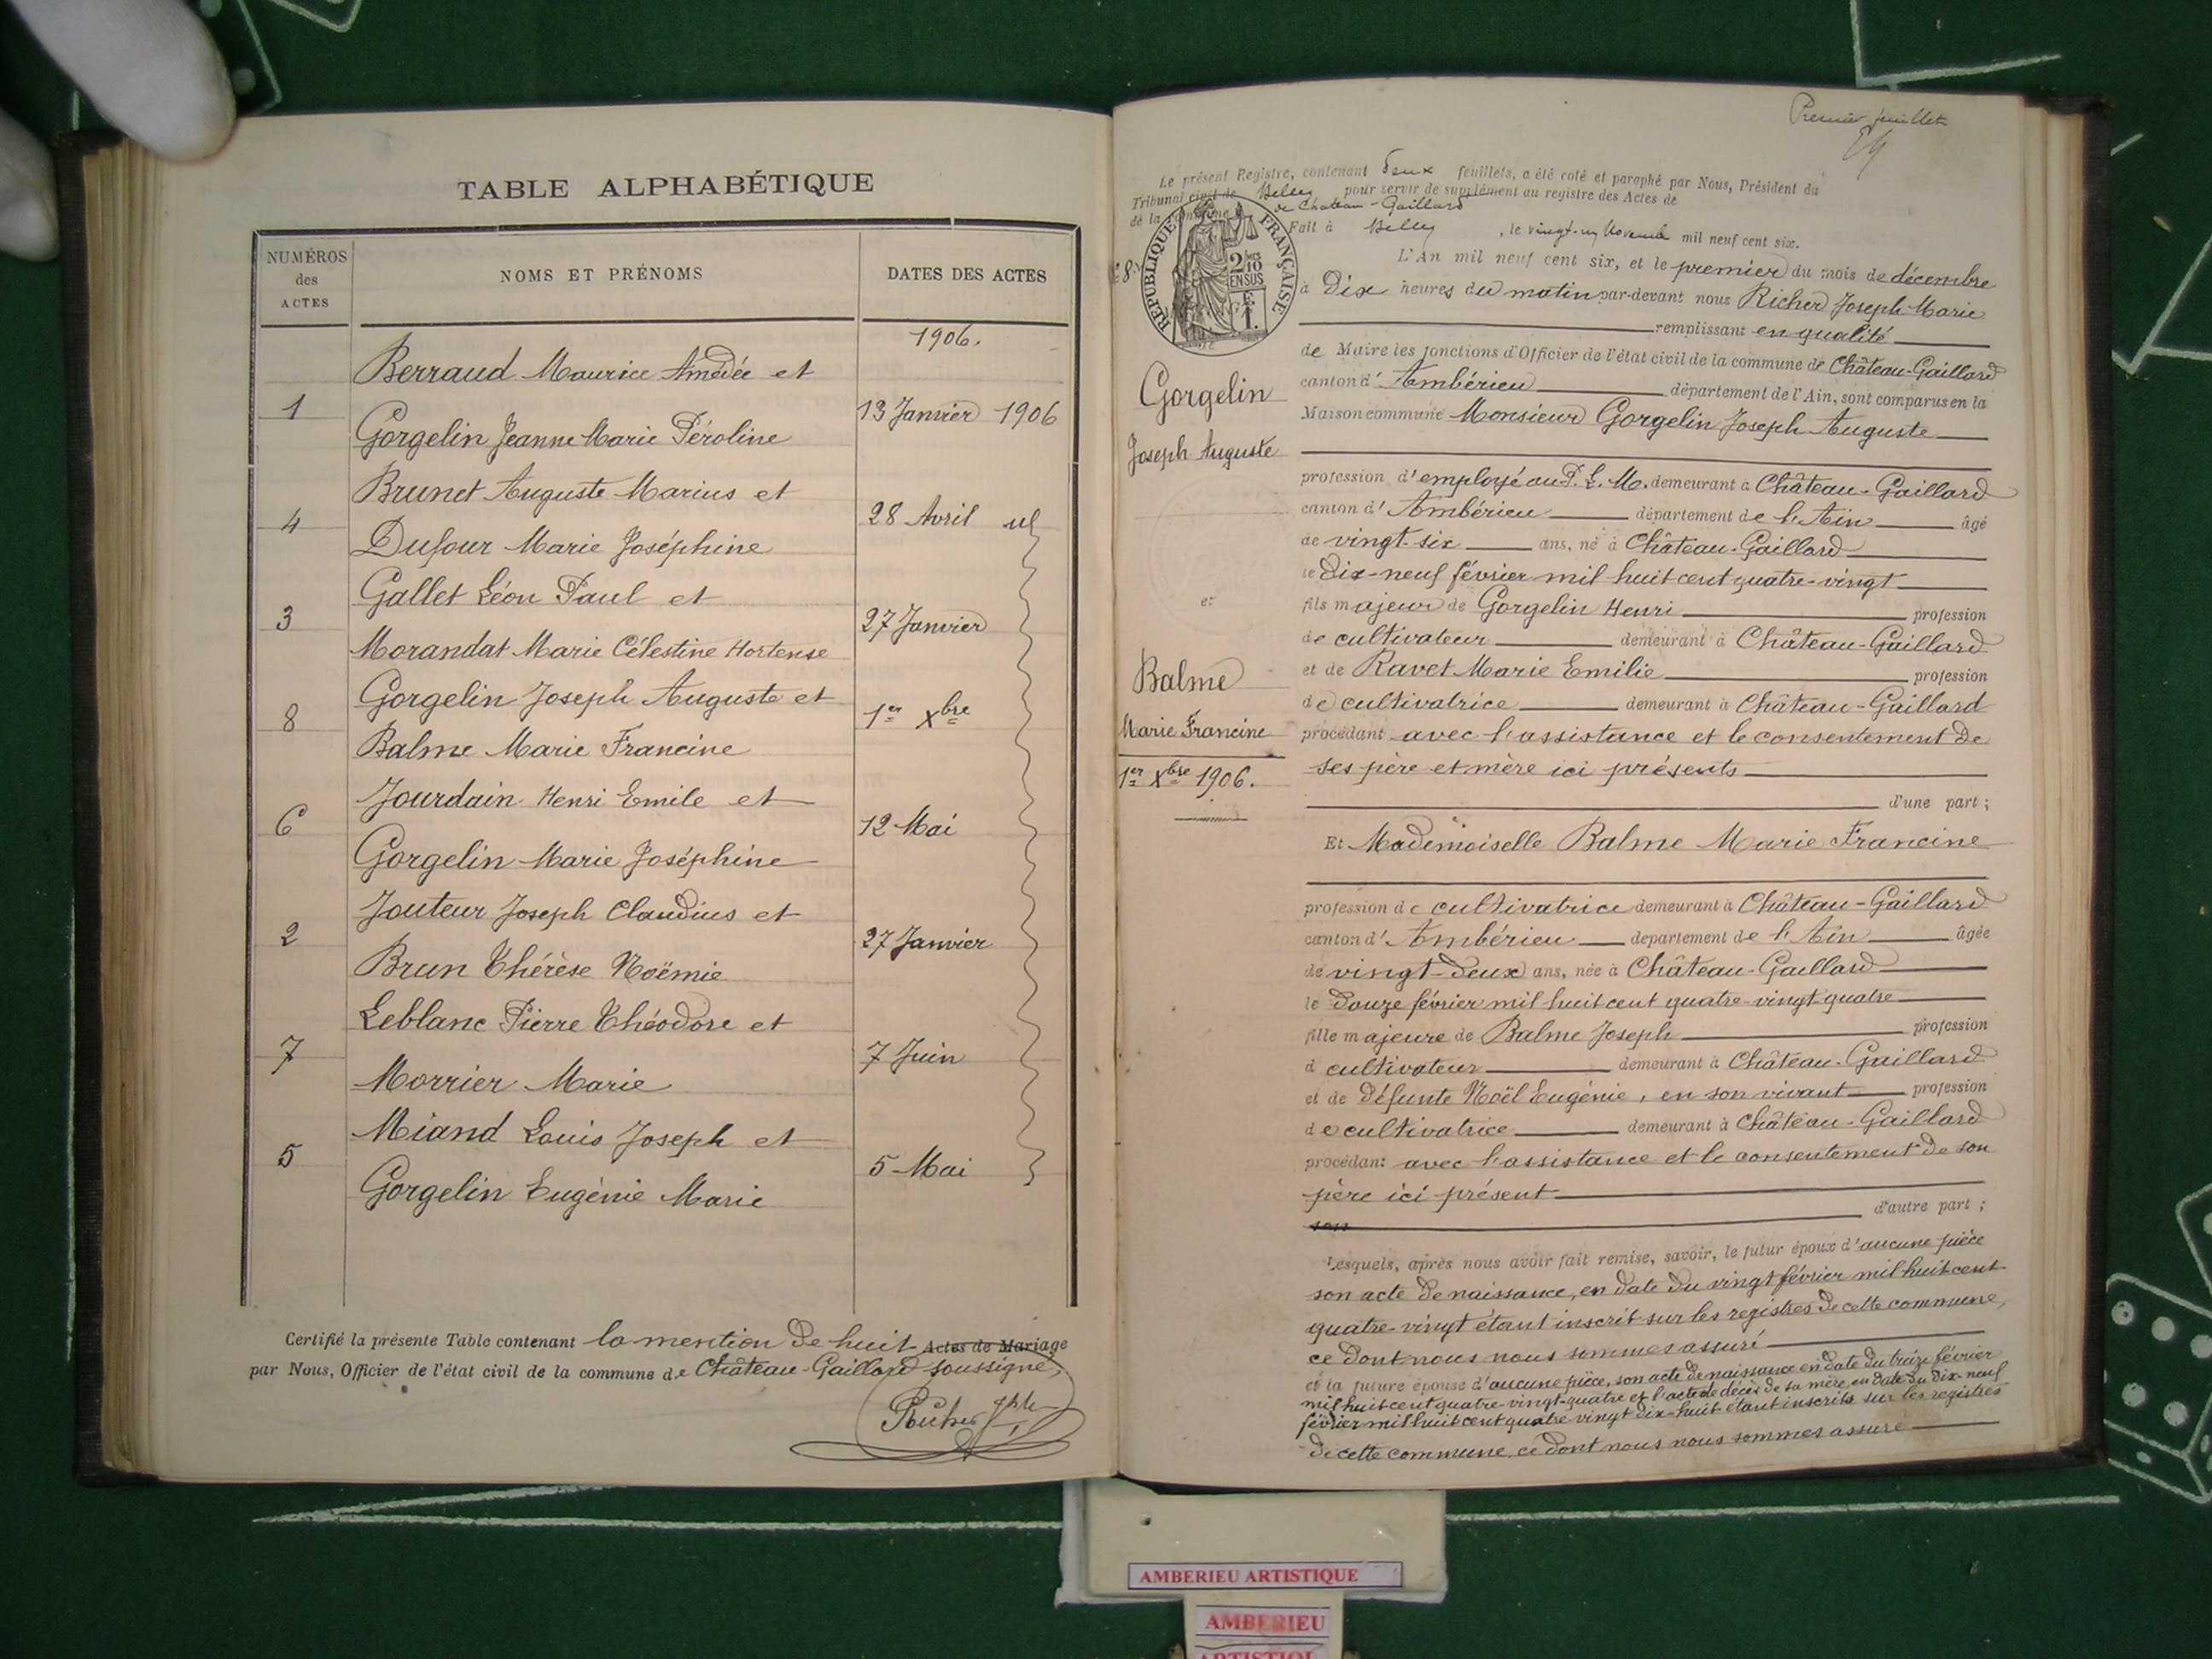 TABLE ALPHABÉTIQUE
NUMÉROS
des
ACTES
NOMS ET PRÉNOMS
DATES DES ACTES
1906.
Berraud Maurice Amédée et
1
13 Janvier 1906
Gorgelin Jeanne Marie Péroline
Brunet Auguste Marius et
4
28 Avril
Dufour Marie Joséphine
Gallet Léon Paul et
3
27 Janvier
Morandat Marie Célestine Hortense
Gorgelin Joseph Auguste et
8
1er Xbre
Balme Marie Francine
Jourdain Henri Emile et
6
12 Mai
Gorgelin Marie Joséphine
Jouteur Joseph Claudius et
2
27 Janvier
Brun Thérèse Noëmie
Leblanc Pierre Théodore et
7
7 Juin
Morrier Marie
Miand Louis Joseph et
5
5 Mai
Gorgelin Eugénie Marie
Certifié la présente Table contenant la mention de huit Actes de Mariage
par Nous, Officier de l'état civil de la commune de Château-Gaillard soussigné,
Premier feuillet
Le présent Registre, contenant Deux feuillets, a été coté et paraphé par Nous, Président du
Tribunal civil de Belley pour servir de supplément au registre des Actes de
de la commune de Château-Gaillard
Fait à Belley, le vingt-un Novembre mil neuf cent six.
RÉPUBLIQUE FRANÇAISE
2/10
EN SUS
1 F.
L'An mil neuf cent six, et le premier du mois de décembre
à Dix heures du matin par-devant nous Richer Joseph Marie
remplissant en qualité
de Maire les fonctions d'Officier de l'état civil de la commune de Château-Gaillard
canton d'Ambérieu département de l'Ain, sont comparus en la
Maison commune Monsieur Gorgelin Joseph Auguste
Gorgelin
Joseph Auguste
et
Balme
Marie Francine
1er Xbre 1906.
profession d'employé au P. L. M. demeurant à Château-Gaillard
canton d'Ambérieu département de l'Ain âgé
de vingt-six ans, né à Château-Gaillard
le Dix-neuf février mil huit cent quatre-vingt
fils majeur de Gorgelin Henri profession
de cultivateur demeurant à Château-Gaillard
et de Ravet Marie Emilie profession
de cultivatrice demeurant à Château-Gaillard
procédant avec l'assistance et le consentement de
ses père et mère ici présents
d'une part ;
Et Mademoiselle Balme Marie Francine
profession de cultivatrice demeurant à Château-Gaillard
canton d'Ambérieu département de l'Ain âgée
de vingt-deux ans, née à Château-Gaillard
le douze février mil huit cent quatre-vingt-quatre
fille majeure de Balme Joseph profession
d cultivateur demeurant à Château-Gaillard
et de défunte Noël Eugénie, en son vivant profession
de cultivatrice demeurant à Château-Gaillard
procédant avec l'assistance et le consentement de son
père ici présent
son
d'autre part ;
Lesquels, après nous avoir fait remise, savoir, le futur époux d'aucune pièce
son acte de naissance, en date du vingt février mil huit cent
quatre-vingt étant inscrit sur les registres de cette commune,
ce dont nous nous sommes assuré
et la future épouse d'aucune pièce, son acte de naissance en date du treize février
mil huit cent quatre-vingt-quatre et l'acte de décès de sa mère, en date du Dix-neuf
février mil huit cent quatre vingt dix-huit étant inscrits sur les registres
de cette commune, ce dont nous nous sommes assuré
AMBERIEU ARTISTIQUE
AMBERIEU
ARTISTIQUE